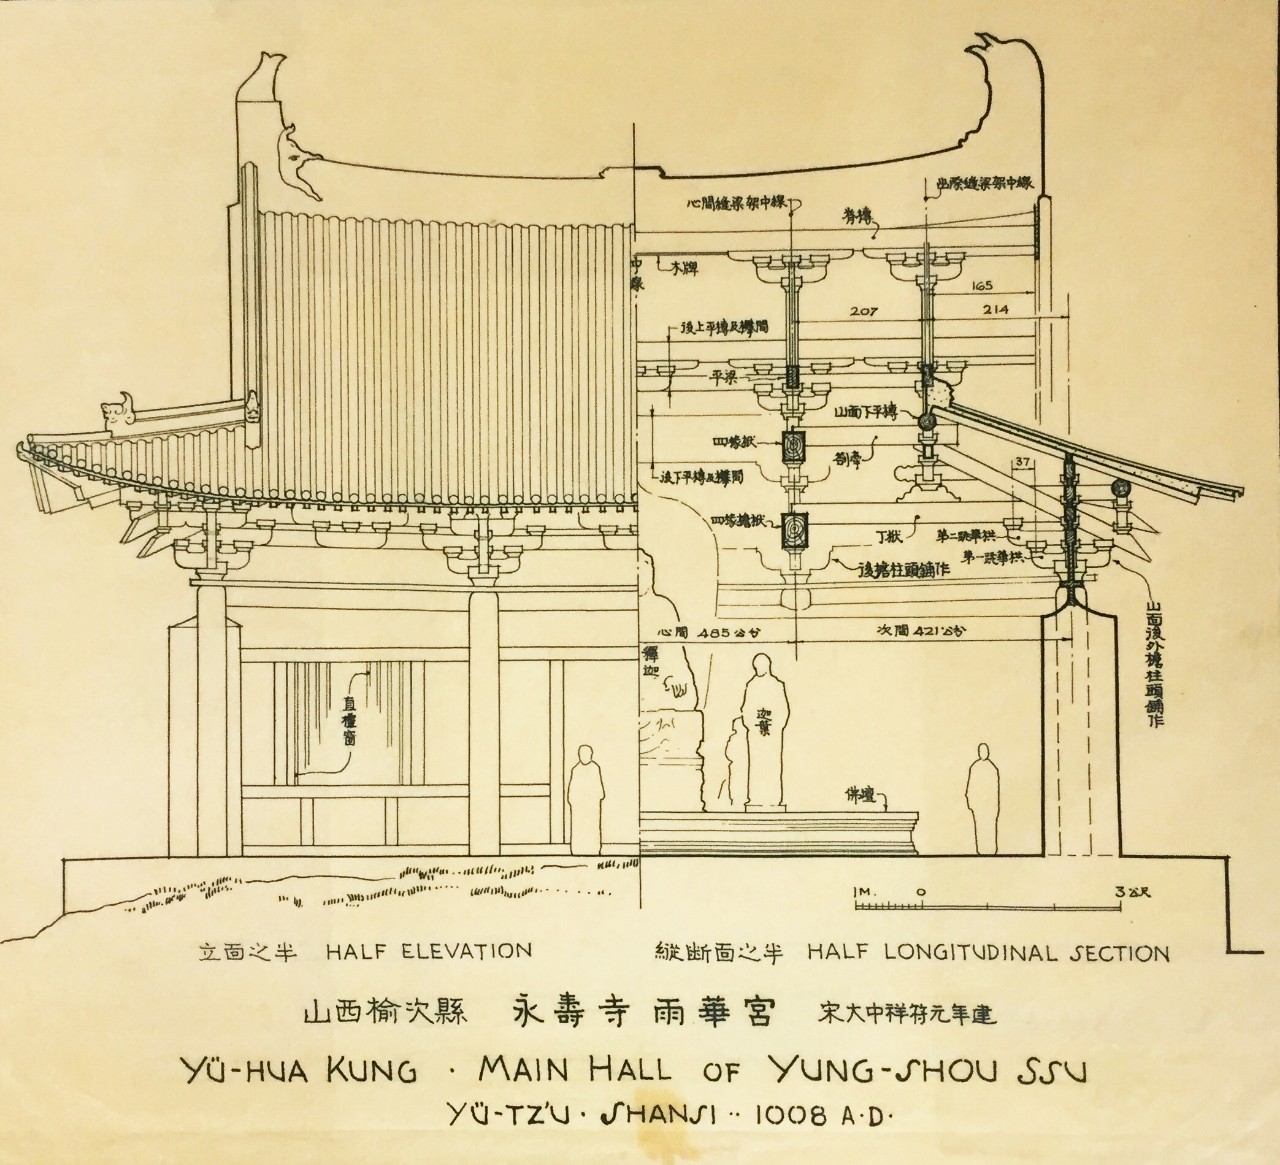 心間縫梁架中線
出際縫梁架中線
脊槫
中線
木牌
165
207
214
後上平槫及襻間
平梁
山面下平槫
四椽栿
劄牽
37
後下平槫及襻間
四椽檐栿
丁栿
第二跳華栱
第一跳華栱
後檐柱頭鋪作
山面後外檐柱頭鋪作
心間 485公分
次間 421公分
釋迦
迦葉
直櫺窗
佛壇
1M. 0 3公尺
立面之半 HALF ELEVATION
縱斷面之半 HALF LONGITUDINAL SECTION
山西榆次縣 永壽寺雨華宮 宋大中祥符元年建
YÜ-HUA KUNG · MAIN HALL OF YUNG-SHOU SSU
YÜ-TZ'U · SHANSI ·· 1008 A·D·